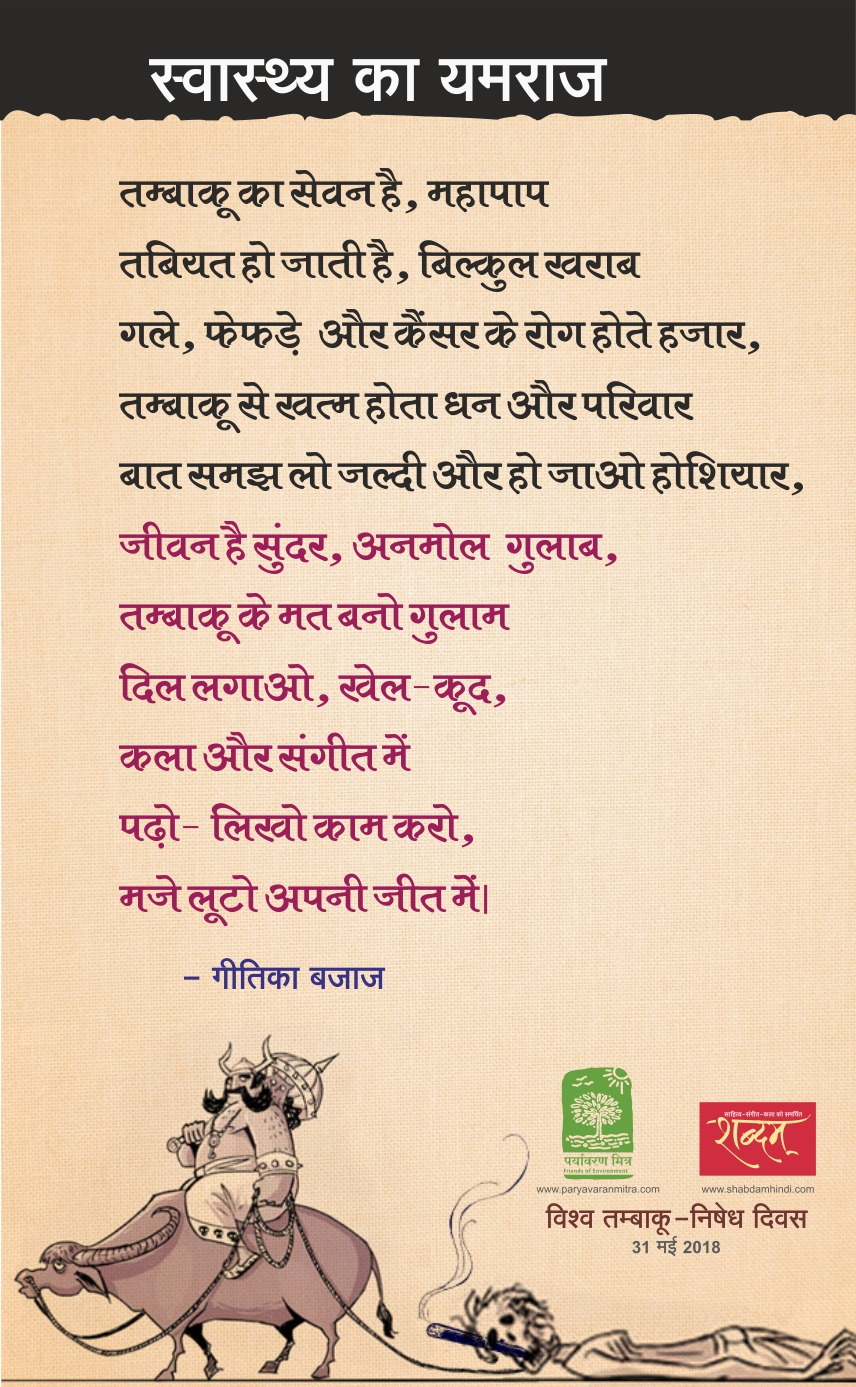 स्वास्थ्य का यमराज
तम्बाकू का सेवन है, महापाप
तबियत हो जाती है, बिल्कुल खराब
गले, फेफड़े और कैंसर के रोग होते हजार,
तम्बाकू से खत्म होता धन और परिवार
बात समझ लो जल्दी और हो जाओ होशियार,
जीवन है सुंदर, अनमोल गुलाब,
तम्बाकू के मत बनो गुलाम
दिल लगाओ, खेल-कूद,
कला और संगीत में
पढ़ो- लिखो काम करो,
मजे लूटो अपनी जीत में|
- गीतिका बजाज
पर्यावरण मित्र
Friends of Environment
www.paryavaranmitra.com
साहित्य-संगीत-कला को समर्पित
शब्दम्
www.shabdamhindi.com
विश्व तम्बाकू-निषेध दिवस
31 मई 2018